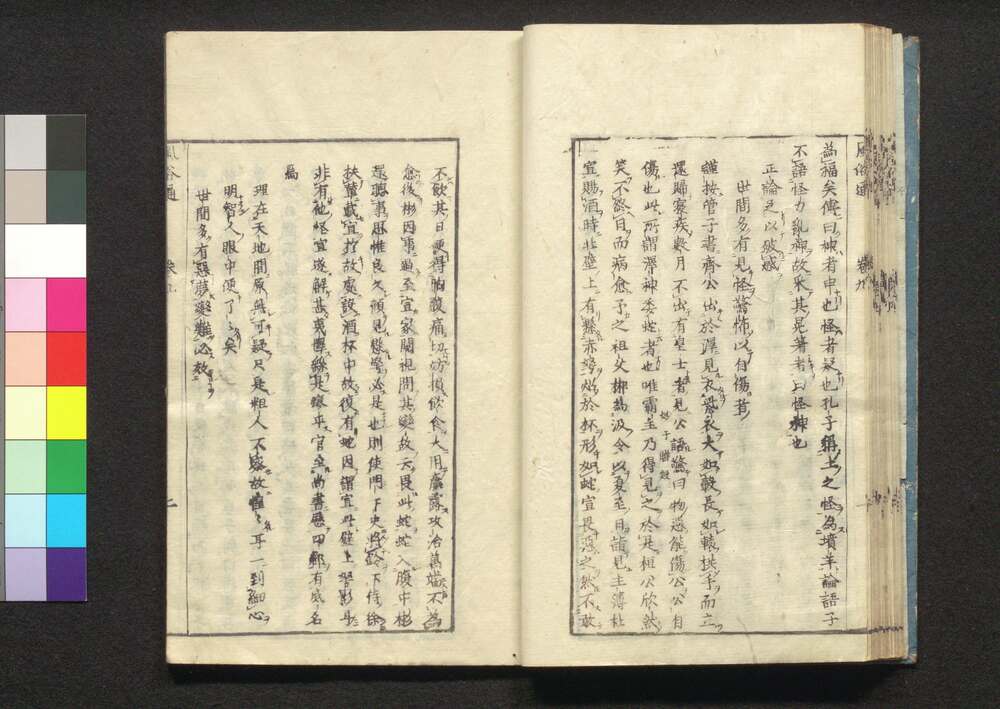 風俗通 卷九
為福矣傳曰神者申也怪者疑也孔子稱土之怪為墳羊論語子
不語怪力亂神故采其晃著者曰怪神也
正論之以破惑
世間多有見怪驚怖以自傷者
謹按管子書齊公出於澤見衣紫衣大如轂長如轅拱手而立
還歸寢疾數月不出有皇士者見公語驚曰物惡能傷公公自
傷也此所謂澤神委蛇者也唯霸主乃得見之於是桓公欣然
笑不終日而病愈予之祖父郴為汲令以夏至日請見主簿杜
宣賜酒時北壁上有懸赤弩照於杯形如蛇宣畏惡之然不敢
不飲其日便得胸腹痛切妨損飲食大用羸露攻治萬端不為
愈後彬因事過至宣家闚視問其變故云畏此蛇蛇入腹中彬
還聽事思惟良久顧見懸弩必是也則使門下史將鈴下侍徐
扶輦載宣於故處設酒杯中故復有蛇因謂宣此壁上弩影耳
非有他怪宣遂解甚夷懌絲是瘳平官至尚書歷四郡有威名
焉
理在天地間原無可疑只是粗人不察故懂〻耳一到細心
明智人眼中便了〻矣
世間多有惡夢變難必效
風俗通